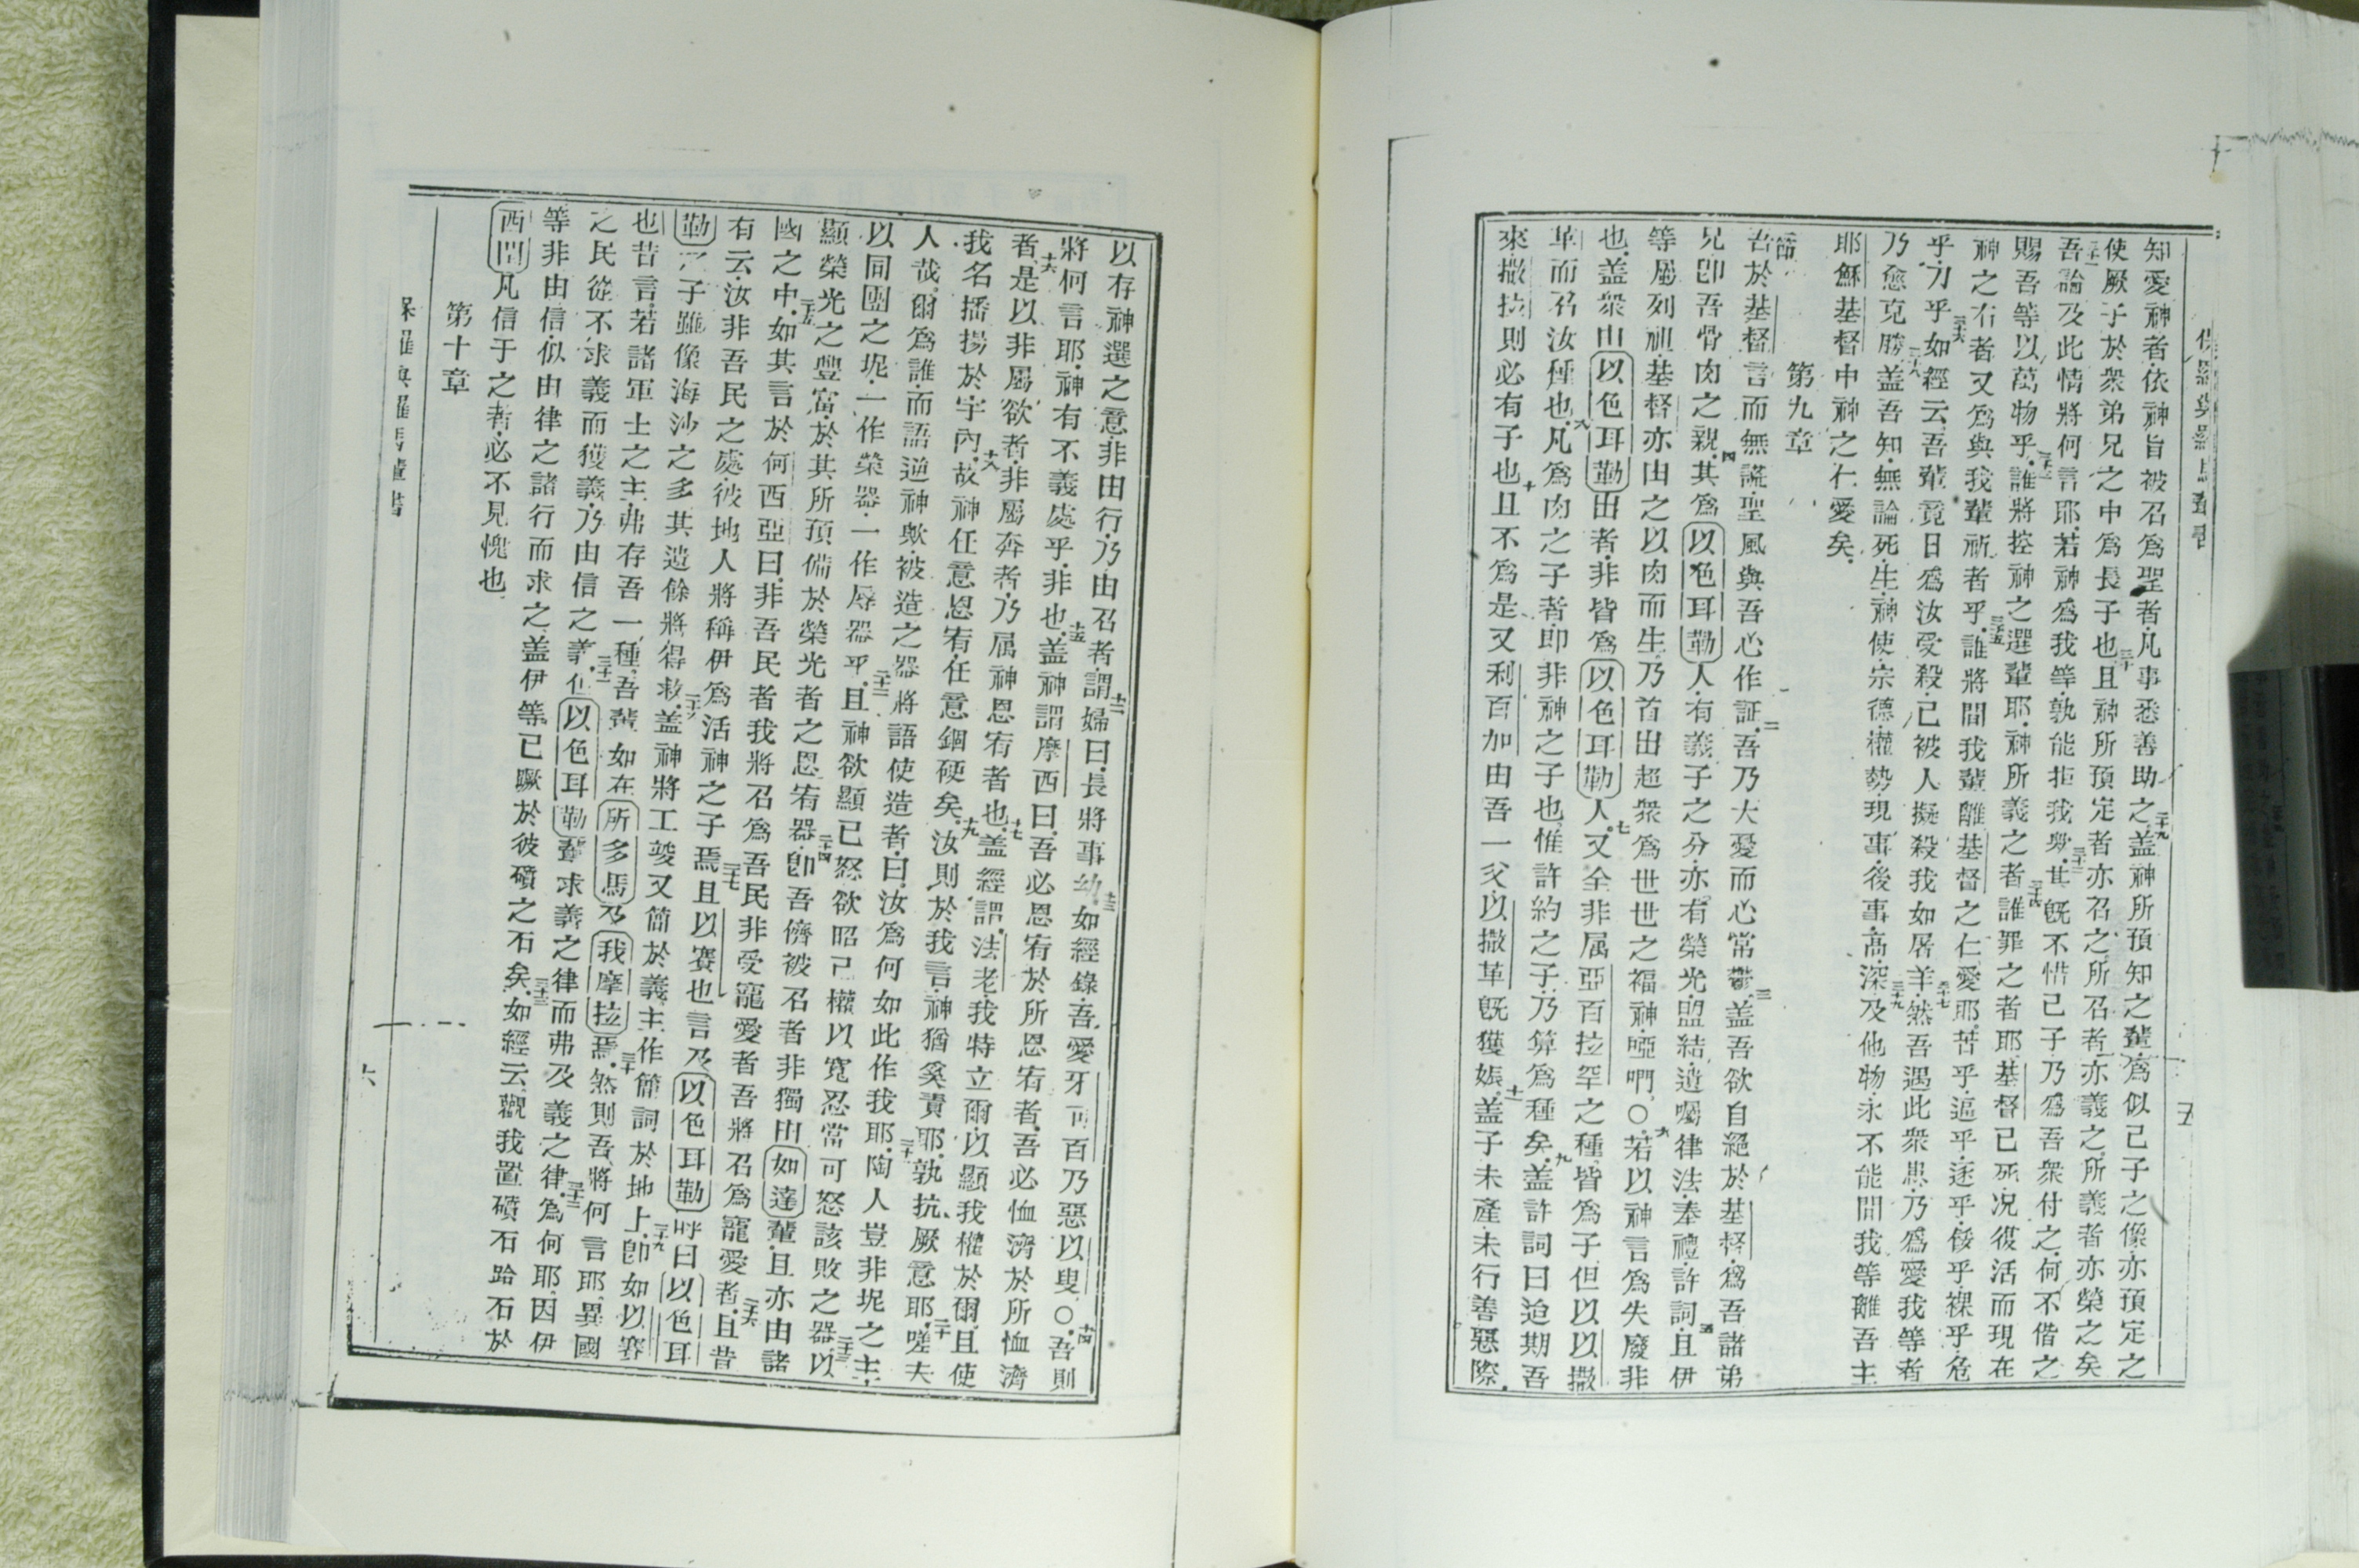 保羅與羅馬輩書 五
知愛神者依神旨被召爲聖者凡事悉善助之二十九盖神所預知之輩爲似己子之像亦預定之
使厥子於衆弟兄之中爲長子也三十且神所預定者亦召之所召者亦義之所義者亦榮之矣
三十一吾論及此情將何言耶若神爲我等孰能拒我歟三十二其旣不惜己子乃爲吾衆付之何不偕之
賜吾等以萬物乎三十三誰將控神之選輩耶神所義之者三十四誰罪之者耶基督已死况復活而現在
神之右者又爲與我輩祈者乎三十五誰將間我輩離基督之仁愛耶苦乎逼乎逐乎餒乎裸乎危
乎刀乎三十六如經云吾輩竟日爲汝受殺已被人擬殺我如屠羊三十七然吾遇此衆患乃爲愛我等者
乃愈克勝三十八盖吾知無論死生神使宗德權勢現事後事三十九高深及他物永不能間我等離吾主
耶穌基督中神之仁愛矣
第九章
一節吾於基督言而無謊聖風與吾心作証二吾乃大憂而心常鬱三盖吾欲自絕於基督爲吾諸弟
兄卽吾骨肉之親四其爲以色耳勒人有義子之分亦有榮光盟結遺囑律法奉禮許詞五且伊
等屬列祖基督亦由之以肉而生乃首出超衆爲世世之福神啞們〇六若以神言爲失廢非
也盖衆由以色耳勒出者非皆爲以色耳勒人七又全非属亞百拉罕之種皆爲子但以以撒
革而名汝種也八凡爲肉之子者即非神之子也惟許約之子乃算爲種矣九盖許詞曰迨期吾
來撒拉則必有子也十且不爲是又利百加由吾一父以撒革旣獲娠十一盖子未產未行善惡際
以存神選之意非由行乃由召者十二謂婦曰長將事幼十三如經錄吾愛牙可百乃惡以叟〇十四吾則
將何言耶神有不義處乎非也十五盖神謂摩西曰吾必恩宥於所恩宥者吾必恤濟於所恤濟
者十六是以非屬欲者非屬奔者乃属神恩宥者也十七盖經謂法老我特立爾以顯我權於爾且使
我名播揚於宇內十八故神任意恩宥任意錮硬矣十九汝則於我言神猶奚責耶孰抗厥意耶二十嗟夫
人哉爾爲誰而語逆神歟被造之器將語使造者曰汝爲何如此作我耶二十一陶人豈非坭之主
以同團之坭一作榮器一作辱器乎二十二且神欲顯已怒欲昭己權以寬忍當可怒該敗之器二十三以
顯榮光之豐富於其所預備於榮光者之恩宥器二十四卽吾儕被召者非獨由如達輩且亦由諸
國之中二十五如其言於何西亞曰非吾民者我將召爲吾民非受寵愛者吾將召爲寵愛者二十六且昔
有云汝非吾民之處彼地人將稱伊爲活神之子焉二十七且以賽也言及以色耳勒呼曰以色耳
勒之子雖像海沙之多其遺餘將得救二十八盖神將工竣又簡於義主作簡詞於地上二十九卽如以賽
也昔言若諸軍士之主弗存吾一種吾輩如在所多馬乃我摩拉焉三十然則吾將何言耶異國
之民從不求義而獲義乃由信之義三十一但以色耳勒輩求義之律而弗及義之律三十二爲何耶因伊
等非由信似由律之諸行而求之盖伊等已蹶於彼礩之石矣三十三如經云觀我置礩石跲石於
西問凡信于之者必不見愧也
第十章
保羅與羅馬輩書 六